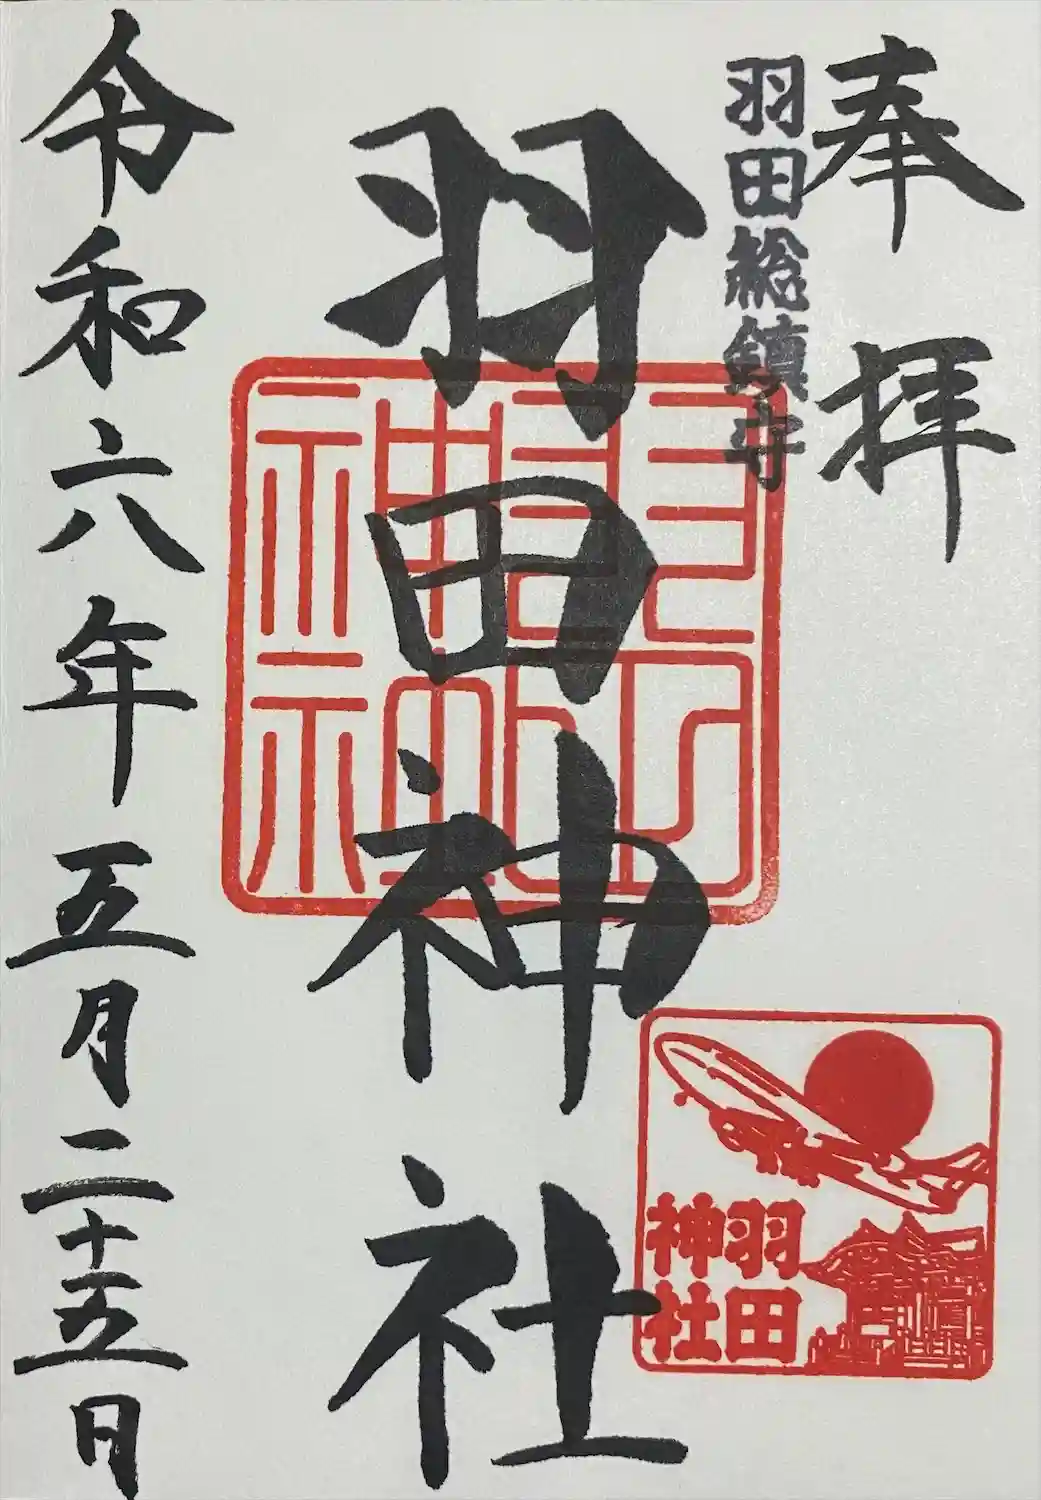 奉拝
羽田総鎮守
羽田神社
令和六年五月二十五日
羽田
神社